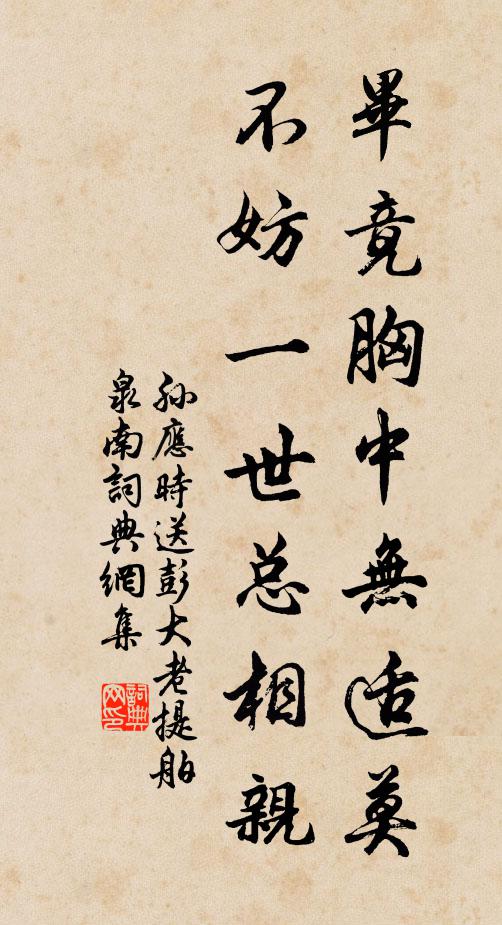 畢竟胸中無适莫
不妨一世总相親
孫應時送彭大老提舶
泉南詞典網集
詞典网印